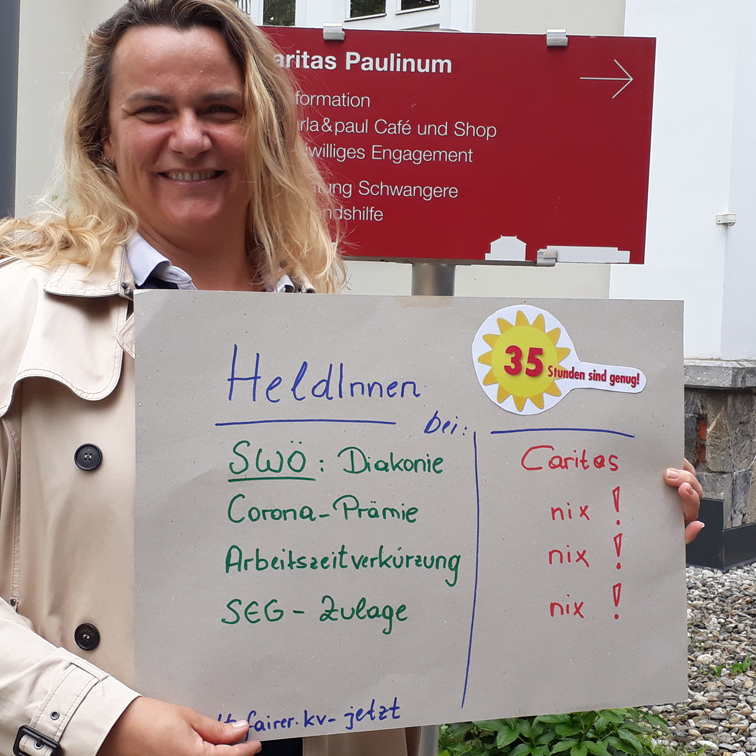 aritas Paulinum
formation
rla&paul Café und Shop
williges Engagement
tung Schwangere
andshilfe
35 Stunden sind genug!
HeldInnen
bei:
SWÖ: Diakonie
Caritas
Corona-Prämie
nix!
Arbeitszeitverkürzung
nix!
SEG-Zulage
nix!
fairer.kv-jetzt